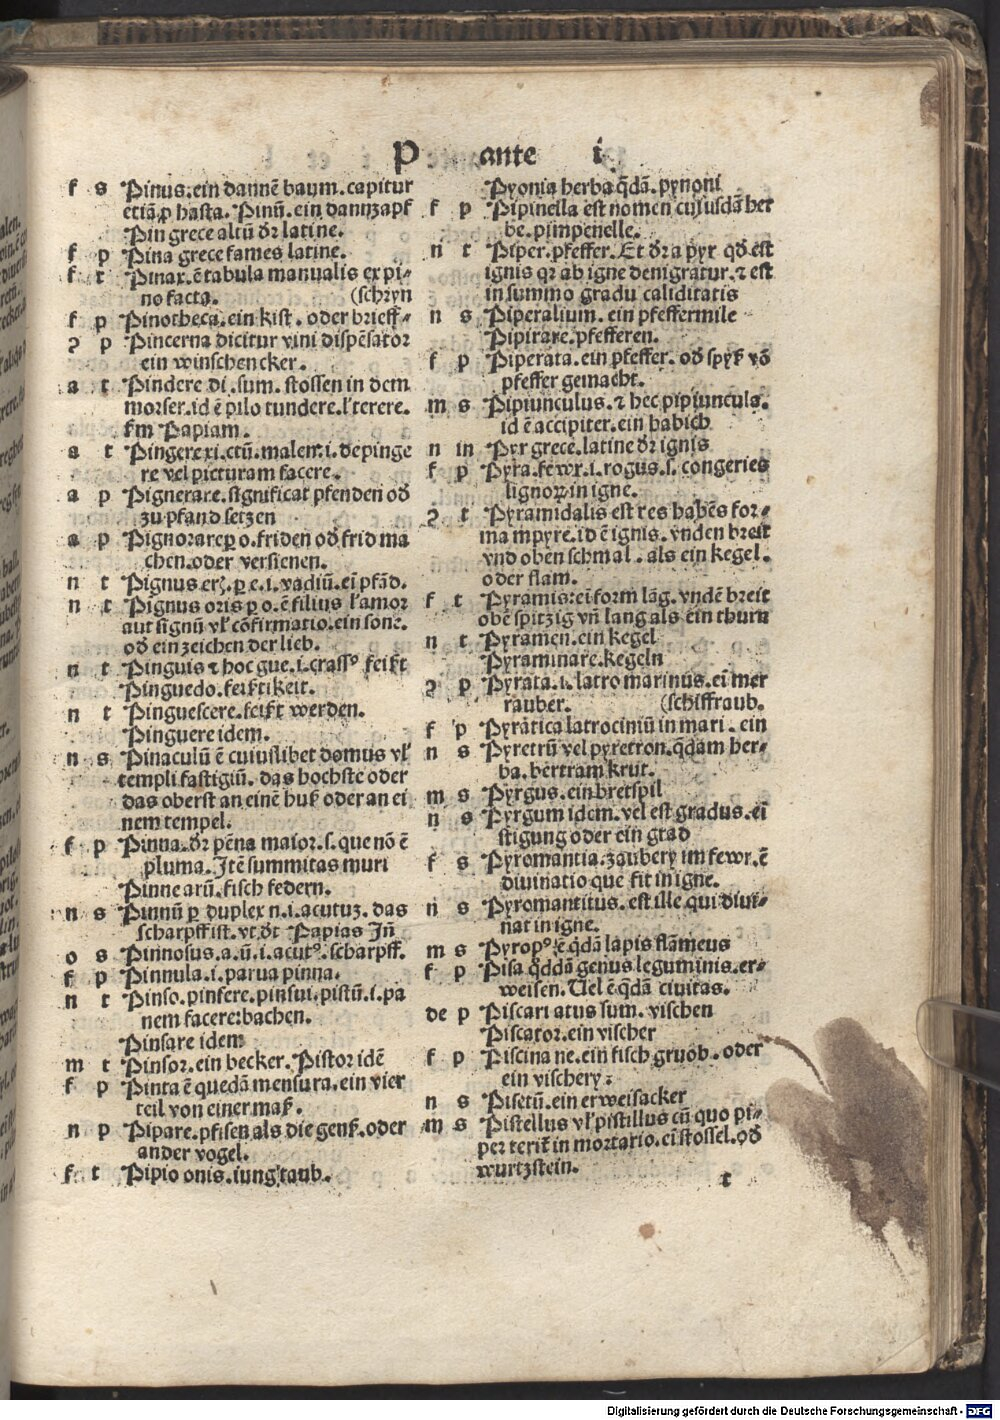 P ante i
f s Pinus.ein dannē baum.capitur
etiā ꝓ hasta. Pinū.ein dannzapf
Pin grece altū dr̄ latine.
f p Pina grece fames latine.
f t Pinax.ē tabula manualis ex pi-
no facta. (schryn
f p Pinotheca.ein kist.oder brieff-
ꝯ p Pincerna dicitur vini dispēsator
ein winschencker.
a t Pindere di.sum.stossen in dem
morser.id ē pilo tundere.lˀterere.
fm Papiam.
a t Pingere xi.ctū.malen.i.depinge
re vel picturam facere.
a p Pignerare.significat pfenden od̄
zu pfand setzen
a p Pignorare ꝑ o.friden od̄ frid ma
chen.oder versienen.
n t Pignus erꝫ.ꝑ e.i.vadiū.eī pfād.
n t Pignus oris ꝑ o.ē filius lˀamor
aut signū vlˀ cōfirmatio.ein sone.
od̄ ein zeichen der lieb.
n t Pinguis ⁊ hoc gue.i.crassꝰ feißt
Pinguedo.feißtikeit.
n t Pinguescere.feißt werden.
Pinguere idem.
n s Pinaculū ē cuiuslibet domus vlˀ
templi fastigiū.das hochste oder
das oberst an einē huß oder an ei
nem tempel.
f p Pinna.dr̄ pēna maior.s.que nō ē
pluma.Itē summitas muri
Pinne arū.fisch federn.
n s Pinnū ꝑ duplex n.i.acutuꝫ.das
scharpff ist.vt dt Papias Jn̄
o s Pinnosus.a.ū.i.acutꝰ.scharpff.
f p Pinnula.i.parua pinna.
n t Pinso.pinsere.pinsui.pistū.i.pa
nem facere:bachen.
Pinsare idem
m t Pinsor.ein becker.Pistor idē
f p Pinta ē quedā mensura.ein vier
teil von einer maß.
n p Pipare.pfisen als die genß.oder
ander vogel.
f t Pipio onis.iung taub.
Pyonia herba q̄dā.pynoni
f p Pipinella est nomen cuiusdā her
be.pimpenelle.
n t Piper.pfeffer.Et dr̄ a pyr qd̄ est
ignis qꝛ ab igne denigratur.⁊ est
in summo gradu caliditatis
n s Piperalium.ein pfeffermile
Pipirare.pfefferen.
f p Piperata.ein pfeffer.od̄ spyß vō
pfeffer gemacht.
m s Pipiunculus.⁊ hec pipiuncula.
id ē accipiter.ein habich
n in Pyr grece.latine dr̄ ignis
f p Pyra.fewr.i.rogus.s.congeries
lignoꝝ in igne.
ꝯ t Pyramidalis est res habēs for-
ma m pyre.id ē ignis.vnden breit
vnd oben schmal.als ein kegel.
oder flam.
f t Pyramis:eī form lāg.vndē breit
obē spitzig vn̄ lang als ein thurn
n t Pyramen.ein kegel
Pyraminare.kegeln
ꝯ p Pyrata.i.latro marinus.eī mer
rauber. (schiffraub.
f p Pyratica latrociniū in mari.ein
n s Pyretrū vel pyretron.qdam her-
ba.bertram krut.
m s Pyrgus.ein bretspil
n s Pyrgum idem.vel est gradus.eī
stigung oder ein grad
f s Pyromantia.zaubery im fewr.ē
diuinatio que fit in igne.
n s Pyromantitus.est ille qui diui-
nat in igne.
m s Pyropꝰ.ē qdā lapis flāmeus
f p Pisa qddā genus leguminis.er-
weisen.Uel ē qdā ciuitas.
de p Piscari atus sum.vischen
Piscator.ein vischer
f p Piscina ne.ein fisch gruob.oder
ein vischery:
n s Pisetū.ein erweisacker
m s Pistellus vlˀ pistillus cū quo pi-
per terit̄ in mortario.eī stossel.od̄
wurtzstein.
t
Digitalisierung gefördert durch die Deutsche Forschungsgemeinschaft - DFG